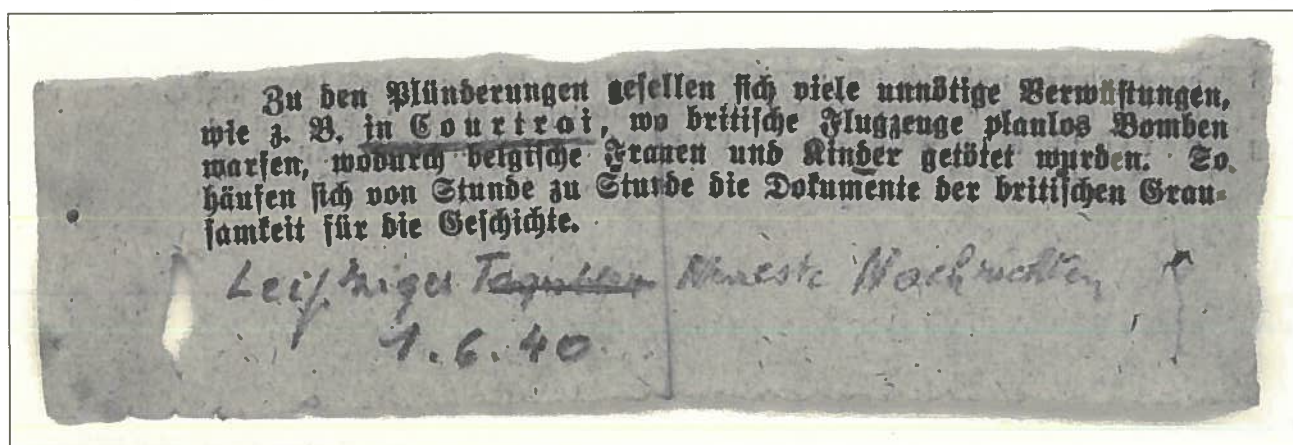 Zu den Plünderungen gesellen sich viele unnötige Verwüstungen,
wie z. B. in Courtrai, wo britische Flugzeuge planlos Bomben
warfen, wodurch belgische Frauen und Kinder getötet wurden. So
häufen sich von Stunde zu Stunde die Dokumente der britischen Grau-
samkeit für die Geschichte.
Leipziger Neueste Nachrichten
1.6.40